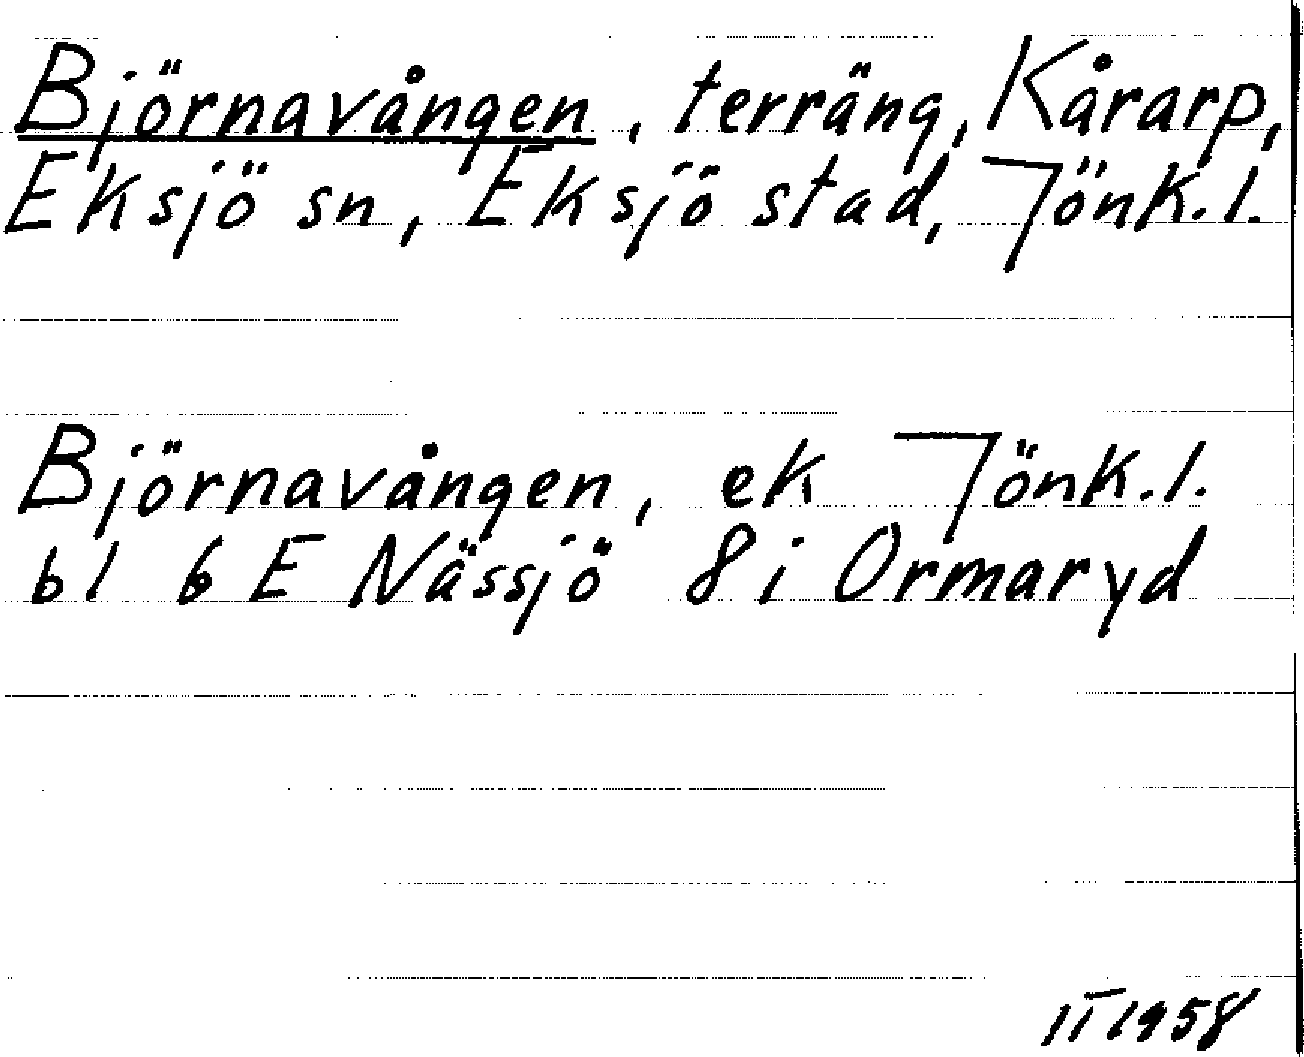 Björnavången, terräng, Kårarp,
Eksjö sn, Eksjö stad, Jönk.l.
Björnavången, ek Jönk.l.
bl 6 E Nässjö 8 i Ormaryd
II 1958